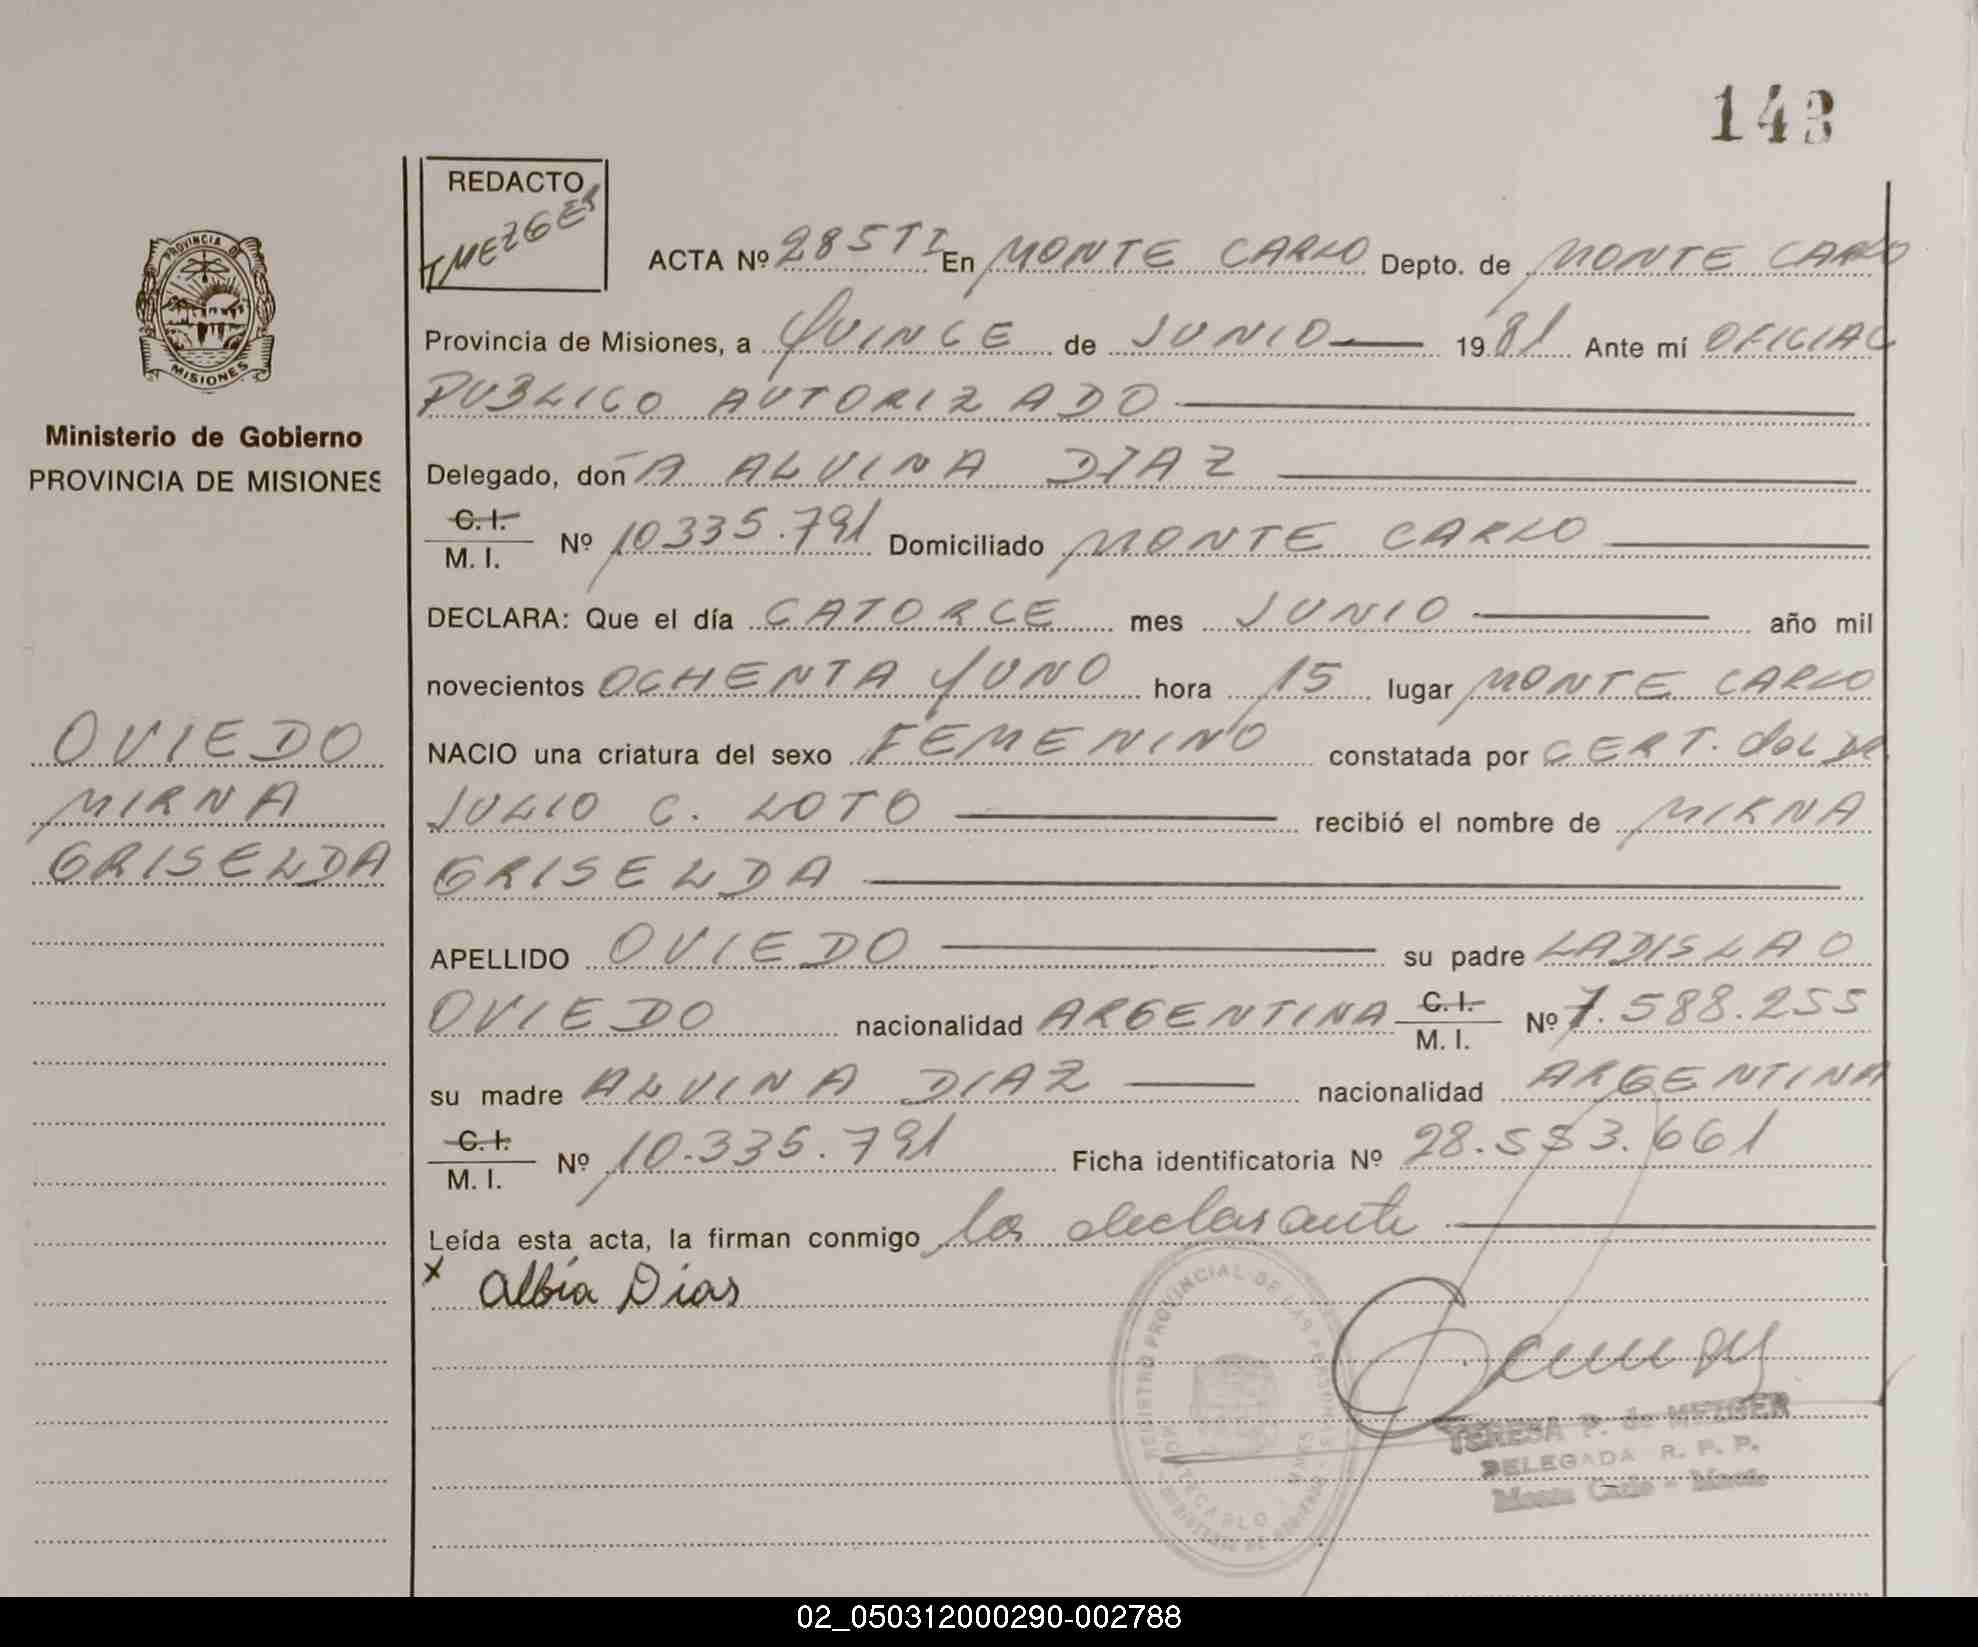 143
REDACTO
T MEZGER
PROVINCIA DE
MISIONES
Ministerio de Gobierno
PROVINCIA DE MISIONES
ACTA Nº 285 TI En MONTE CARLO Depto. de MONTE CARLO
Provincia de Misiones, a QUINCE de JUNIO 1981 Ante mí OFICIAL
PUBLICO AUTORIZADO
Delegado, don A ALVINA DIAZ
C. I.
M. I. Nº 10.335.791 Domiciliado MONTE CARLO
DECLARA: Que el día CATORCE mes JUNIO año mil
novecientos OCHENTA Y UNO hora 15 lugar MONTE CARLO
OVIEDO
MIRNA
GRISELDA
NACIO una criatura del sexo FEMENINO constatada por CERT. del DR
JULIO C. LOTO recibió el nombre de MIRNA
GRISELDA
APELLIDO OVIEDO su padre LADISLAO
OVIEDO nacionalidad ARGENTINA C. I. M. I. Nº 7.588.255
su madre ALVINA DIAZ nacionalidad ARGENTINA
C. I.
M. I. Nº 10.335.791 Ficha identificatoria Nº 28.553.661
Leída esta acta, la firman conmigo la declarante
x Albia Dias
REGISTRO PROVINCIAL DE LAS PERSONAS
TERESA P. de METGER
DELEGADA R. P. P.
Monte Carlo - Mnes.
02_050312000290-002788